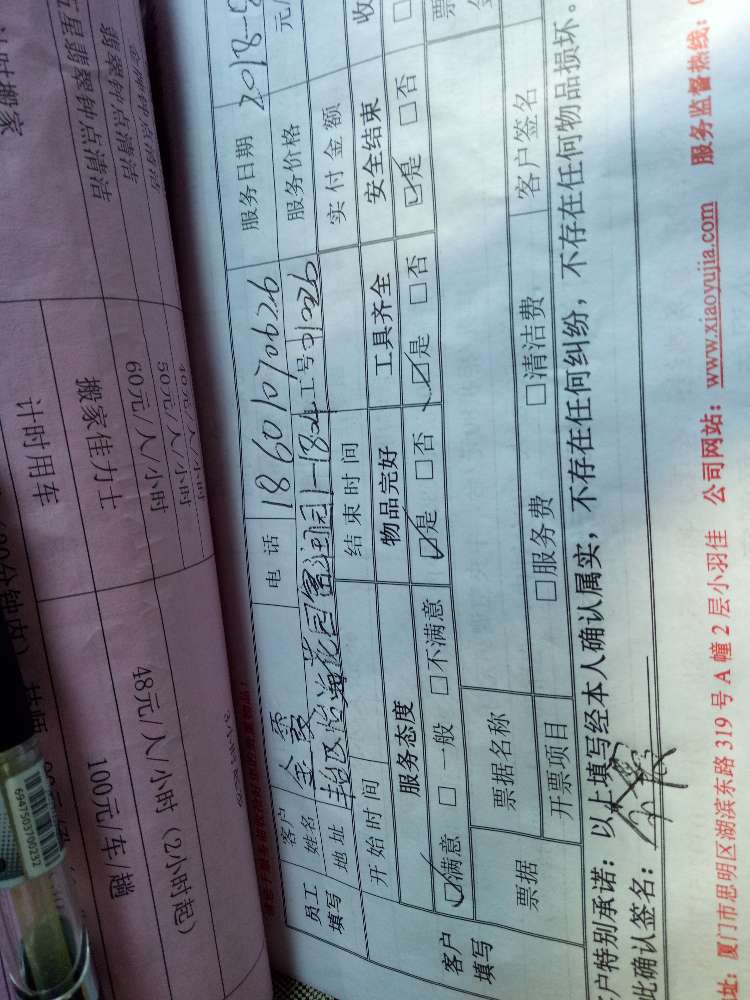 员工填写
客户姓名 金霞 电话 18601070626 服务日期 2018-
地址 服务价格 元/
工号 01026
开始时间 结束时间 实付金额
客户填写
服务态度 物品完好 工具齐全 安全结束 收
☑满意 □一般 □不满意 ☑是 □否 ☑是 □否 ☑是 □否 □
票据 票据名称
开票项目 □服务费 □清洁费 客户签名
户特别承诺：以上填写经本人确认属实，不存在任何纠纷，不存在任何物品损坏。
此确认签名：
址：厦门市思明区湖滨东路 319 号 A 幢 2 层小羽佳 公司网站：www.xiaoyujia.com 服务监督热线：
计时搬家
五星翡翠钟点清洁
翡翠钟点清洁
搬家佳力士
计时用车
50元/人/小时
60元/人/小时
48元/人/小时（2小时起）
100元/车/趟
6947503700237